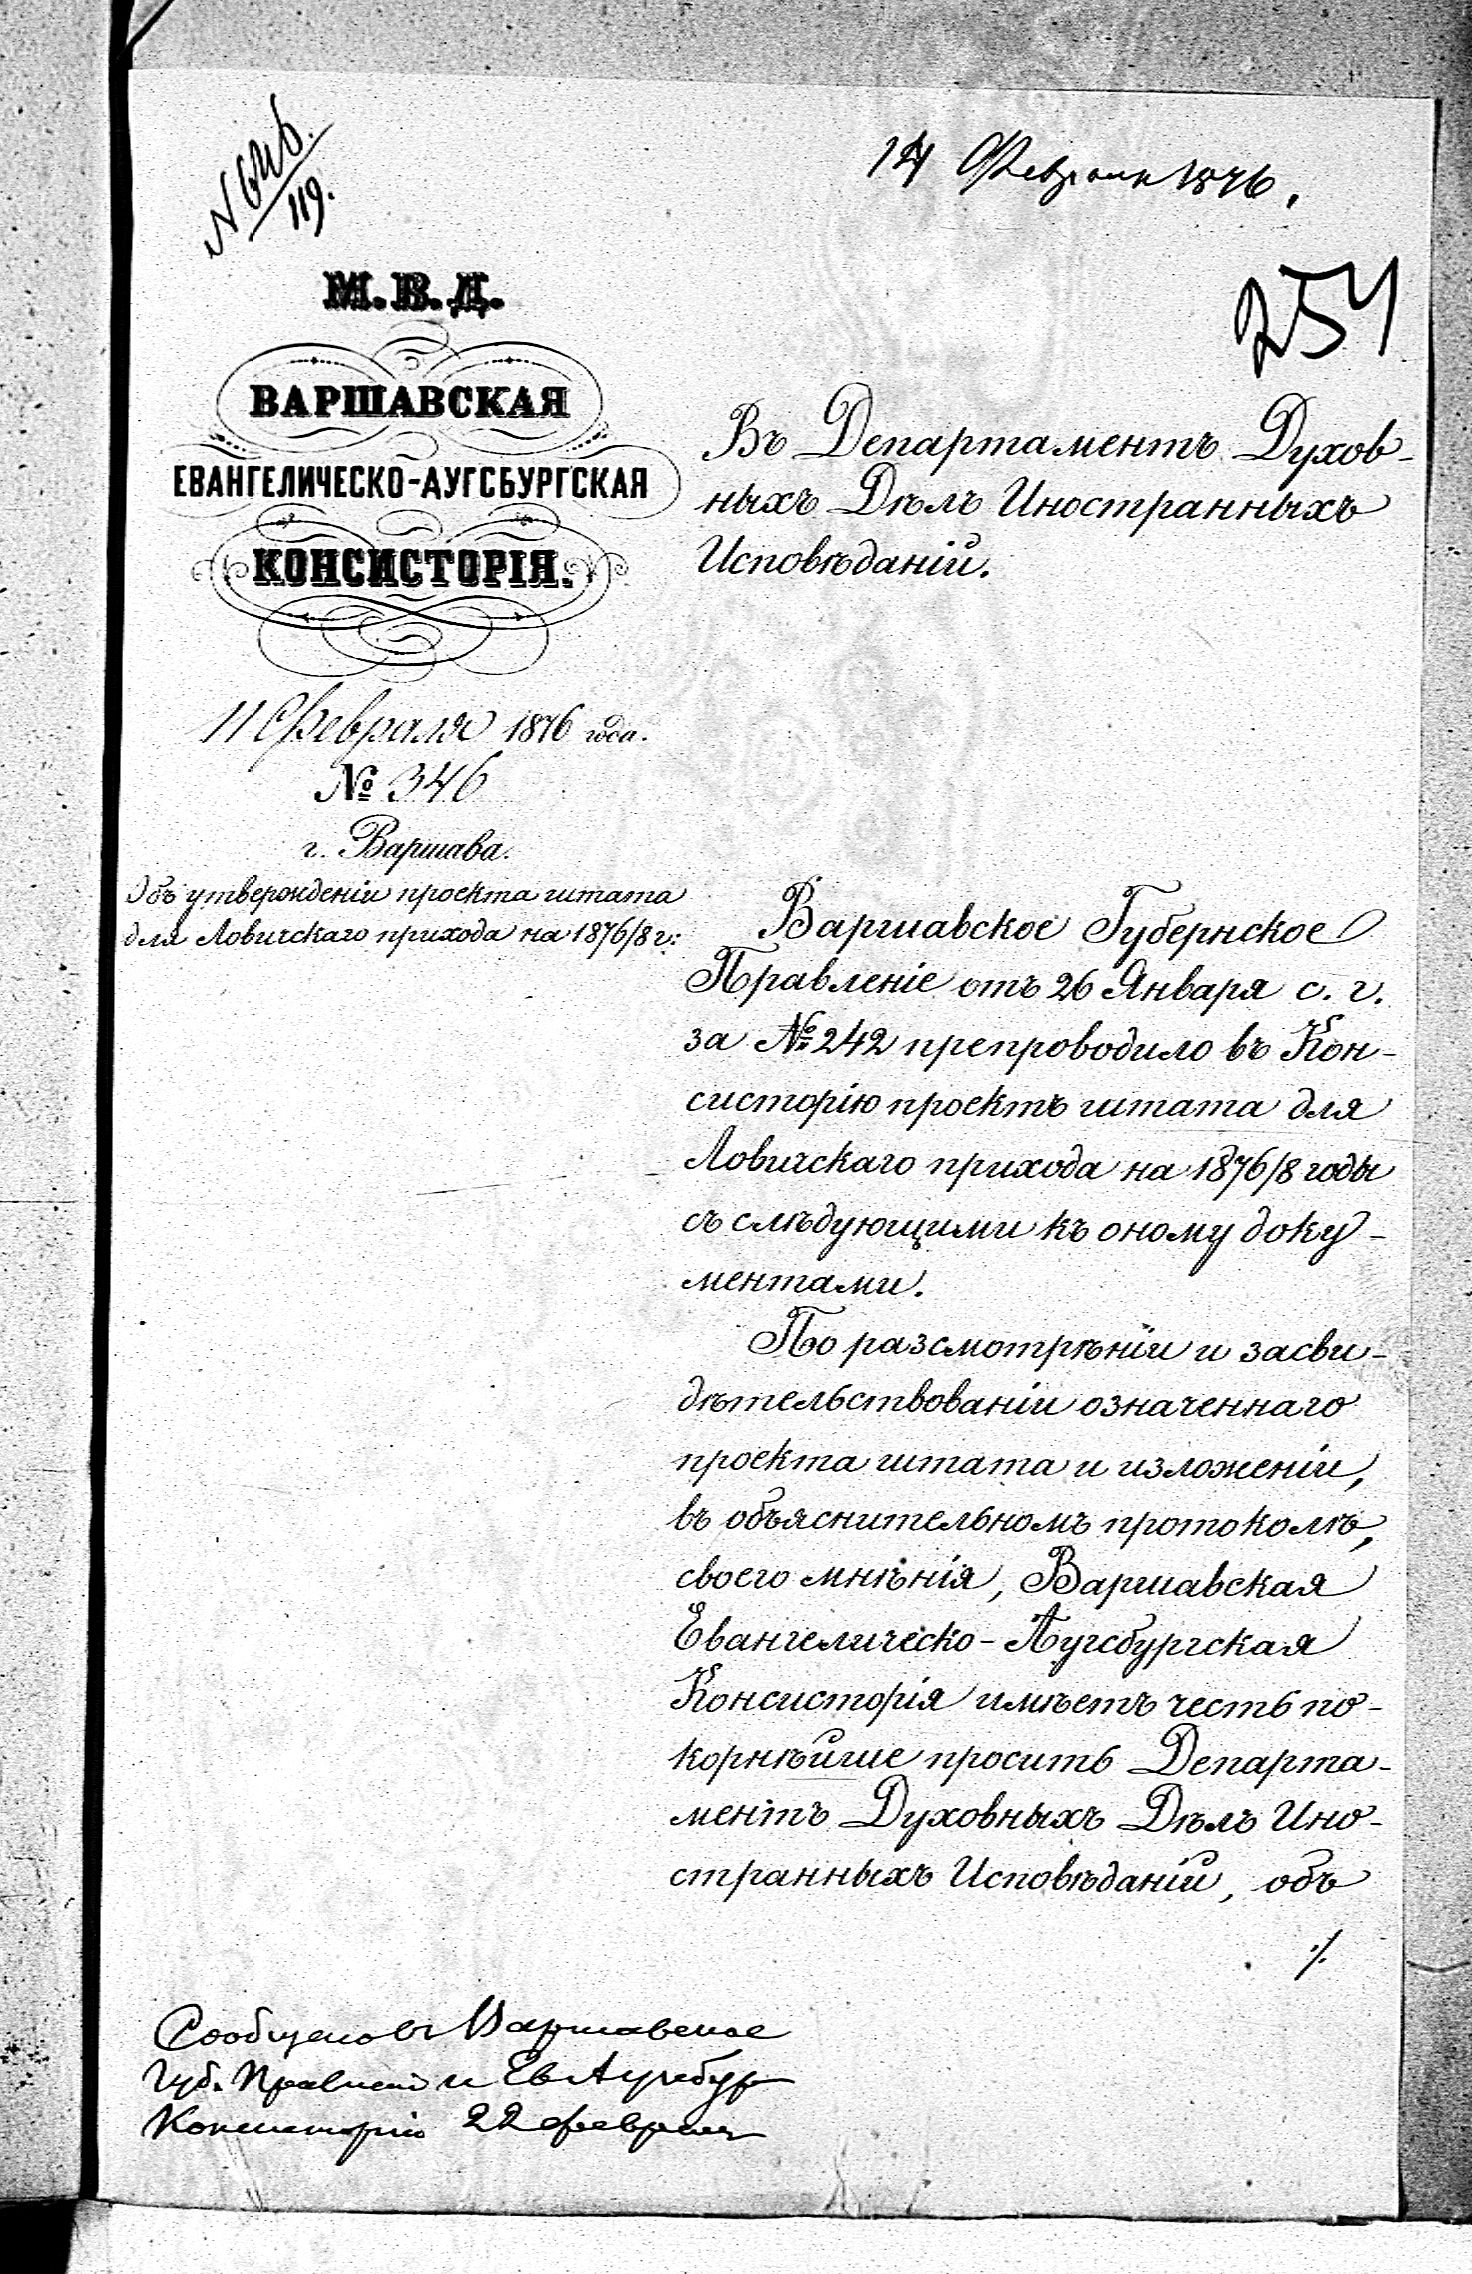 119.
14 Февраля 1876.
254
М.В.Д.
ВАРШАВСКАЯ
ЕВАНГЕЛИЧЕСКО-АУГСБУРГСКАЯ
КОНСИСТОРІЯ.
11 Февраля 1876 года.
№ 346
г. Варшава.
Объ утвержденіи проекта штата
для Ловичскаго прихода на 1876/8 г:
Въ Департаментъ Духов-
ныхъ Дѣлъ Иностранныхъ
Исповѣданій.
Варшавское Губернское
Правленіе отъ 26 Января с. г.
за № 242 препроводило въ Кон-
систорію проектъ штата для
Ловичскаго прихода на 1876/8 годы
съ слѣдующими къ оному доку-
ментами.
По разсмотрѣніи и засви-
дѣтельствованіи означеннаго
проекта штата и изложеніи,
въ объяснительномъ протоколѣ,
своего мнѣнія, Варшавская
Евангелическо-Аугсбургская
Консисторія имѣетъ честь по-
корнѣйше просить Департа-
ментъ Духовныхъ Дѣлъ Ино-
странныхъ Исповѣданій, объ
./.
Сообщено въ Варшавское
Губ. Правленіе и Ев Аугсбур
Консисторію 22 февраля